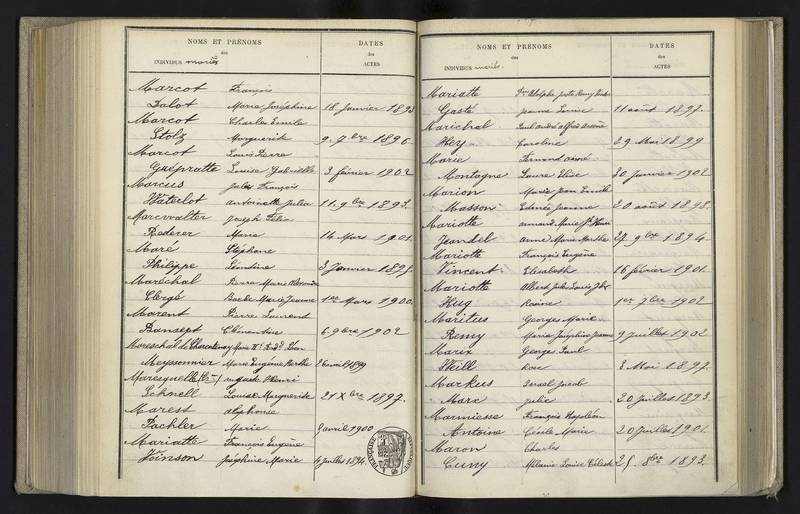 NOMS ET PRÉNOMS
des
INDIVIDUS mariés
DATES
des
ACTES
Marcot François
Dalot Marie Joséphine 18 Janvier 1893
Marcot Charles Emile
Stolz Marguerite 9. 7bre 1896
Marcot Louis Pierre
Louise Gabrielle 3 février 1902
Marcus Jules François
Waterlot antoinette Julie 11. 9bre 1893.
Marcwalter Joseph Félix
Rederer Marie 14 Mars 1901.
Maré Stéphane
Philippe Léontine 3 Janvier 1895.
Maréchal Pierre Marie Alexandre
Clergé Marie Jeanne 1er Mars 1900.
Marent Pierre Laurent
Bansept Clémentine 6 9bre 1902
Mareschal de Charentenay Marie
Meyssonnier Marie Eugénie Marthe avril 1899
Maresquelle auguste Henri
Schnell Louise Marguerite 21 Xbre 1897.
Marest alphonse
Pachler Marie avril 1900
Mariatte François Eugène
Joinson Joséphine Marie 4 Juillet 1894.
NOMS ET PRÉNOMS
des
INDIVIDUS mariés.
DATES
des
ACTES
Mariatte
Gasté Jeanne Louise 11 août 1897.
Marichal Paul André alfred
Hey Caroline 29 Mai 1899
Marie Fernand aimé
Montagne Laure Elise 30 Janvier 1902.
Marion Marie Jean Emile
Masson Edmée Jeanne 20 août 1898.
Mariotte armand Marie Jh Henri
Jeandel anne Marie Marthe 27. 9bre 1894.
Mariotte François Eugène
Vincent Elisabeth 16 février 1901.
Mariotte Albert Jules Louis
Hug Rosine 1er 7bre 1902
Maritus Georges Marie
Remy Marie Joséphine Jeanne 9 Juillet 1902
Marix Georges Paul
Weill Rose Mai 1897.
Markus Israel Jacob
Marx Julie 20 Juillet 1893.
Marmiesse François Napoléon
Antoine Cécile Marie 20 Juillet 1901.
Maron Charles
Cuny Mélanie Louise Céleste 25. 8bre 1893.